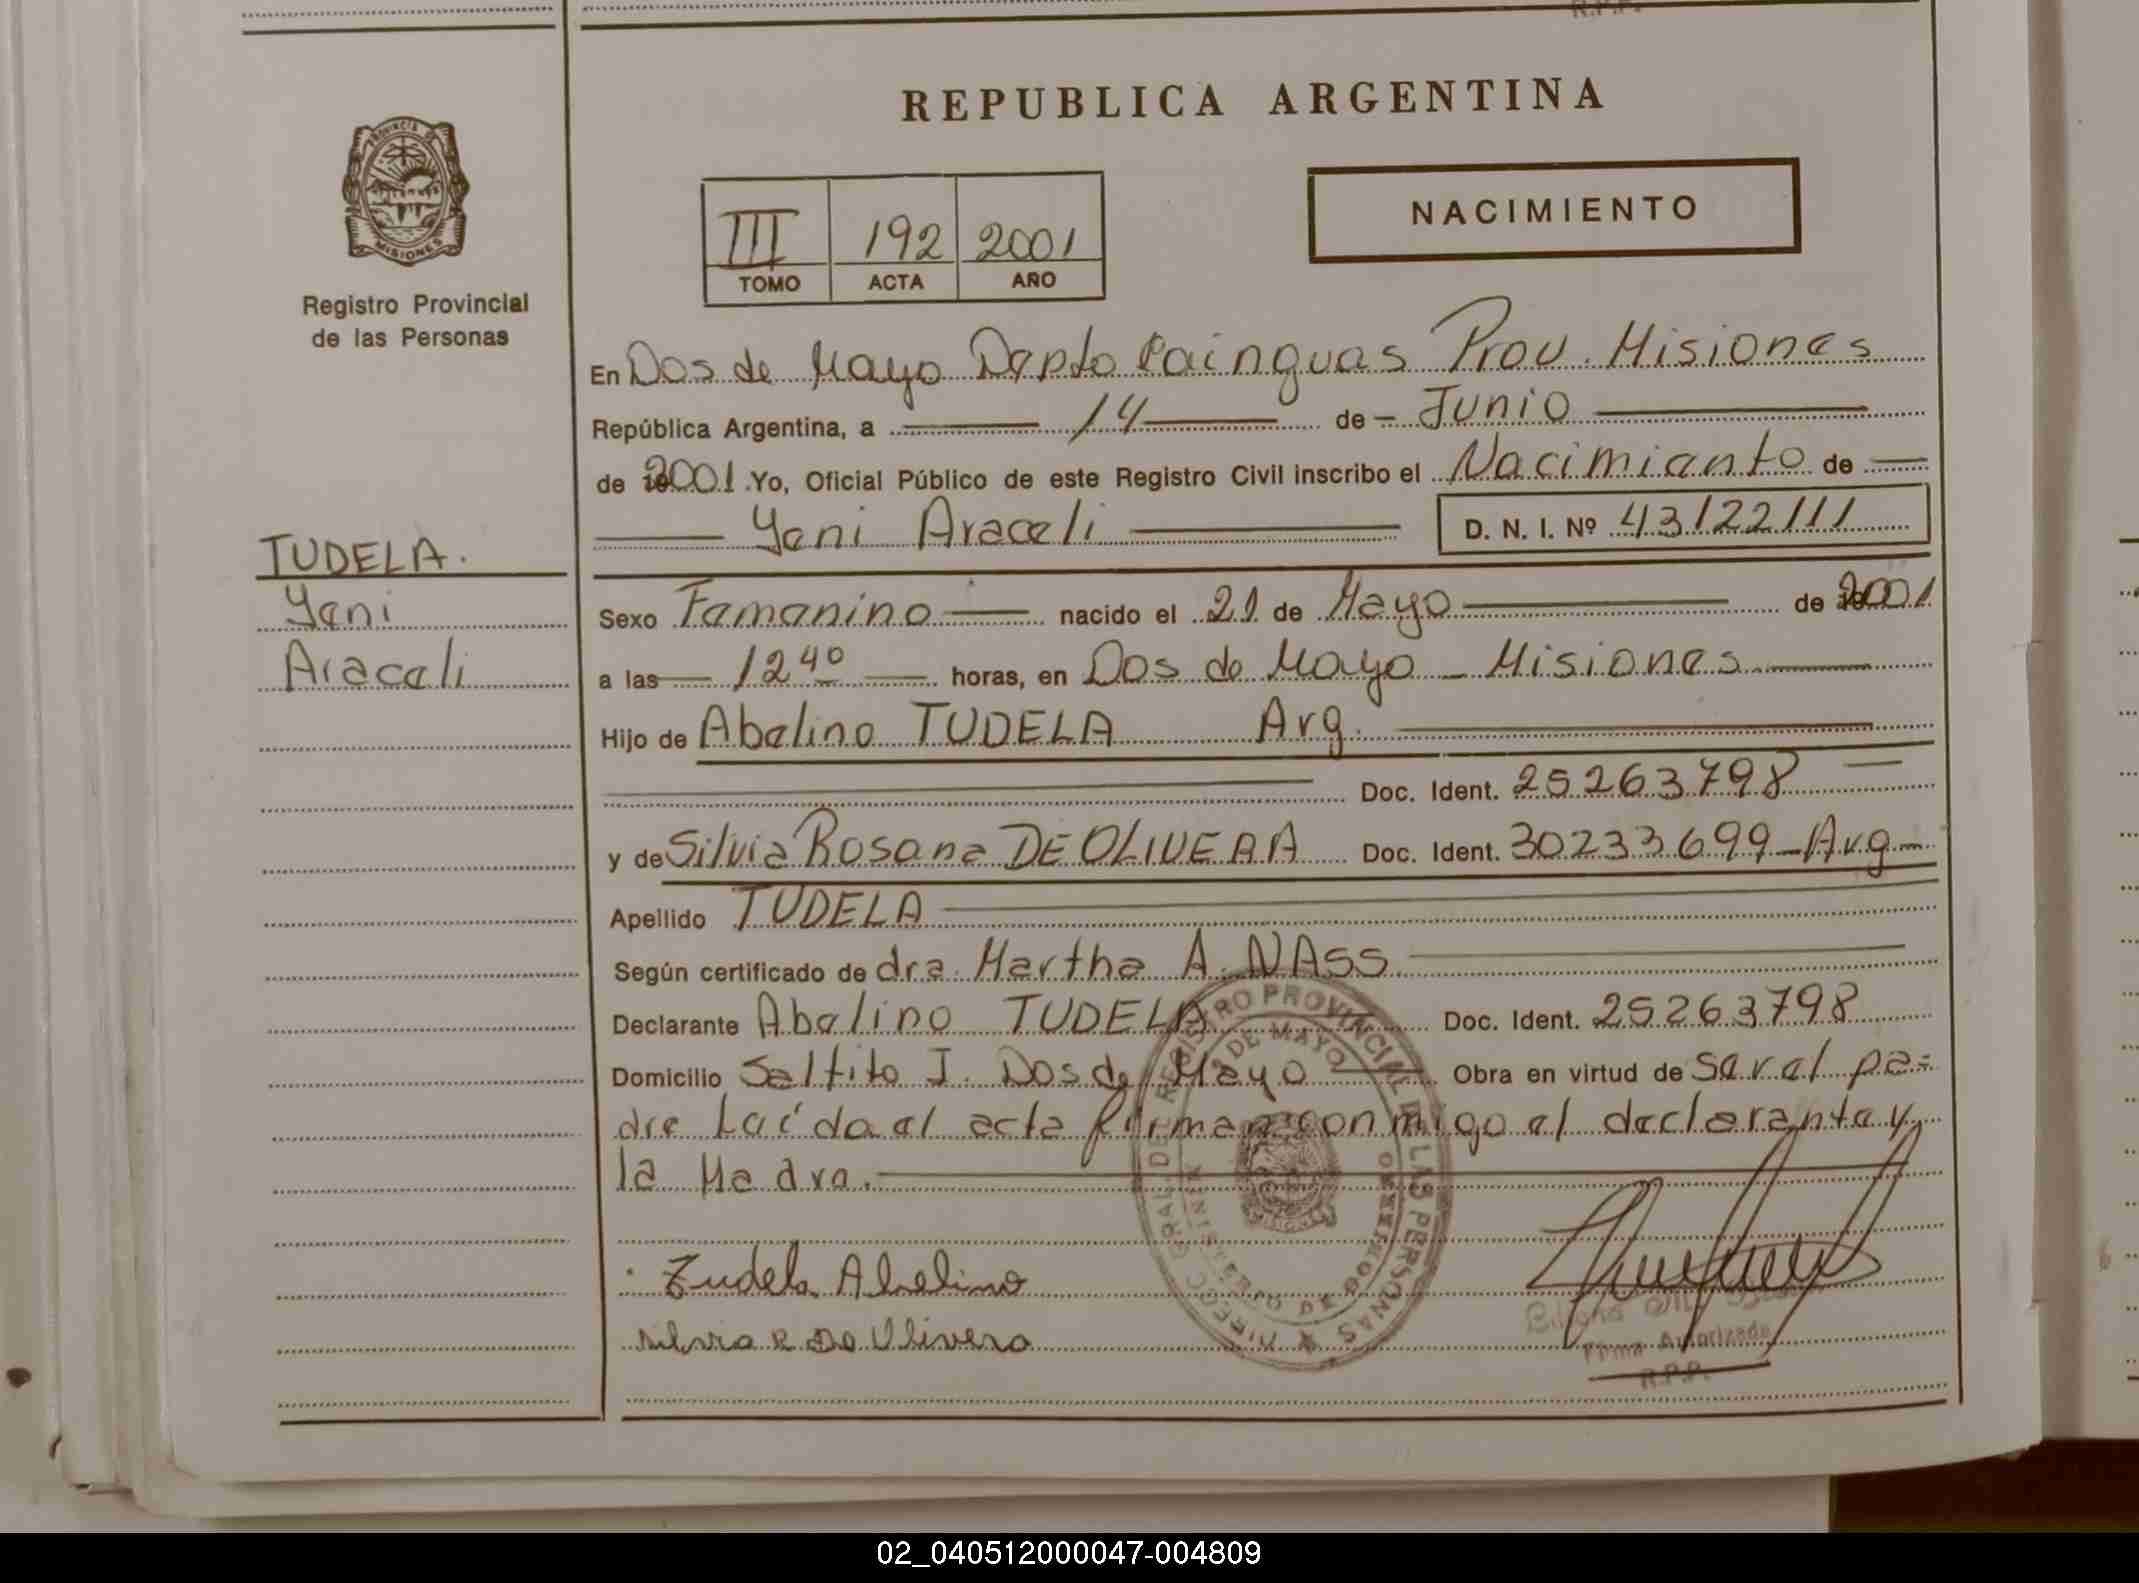 REPUBLICA ARGENTINA
PROVINCIA DE
MISIONES
Registro Provincial
de las Personas
III 192 2001
TOMO ACTA AÑO
NACIMIENTO
En Dos de Mayo Depto Cainguas Prov. Misiones
República Argentina, a 14 de Junio
de 2001 Yo, Oficial Público de este Registro Civil inscribo el Nacimiento de
Yeni Araceli D. N. I. Nº 43122111
TUDELA.
Yeni
Araceli
Sexo Femenino nacido el 21 de Mayo de 2001
a las 12 40 horas, en Dos de Mayo - Misiones
Hijo de Abelino TUDELA Arg.
Doc. Ident. 25263798
y de Silvia Rosana DE OLIVERA Doc. Ident. 30233699 - Arg
Apellido TUDELA
Según certificado de dra. Martha A. NASS
Declarante Abelino TUDELA Doc. Ident. 25263798
Domicilio Saltito I. Dos de Mayo Obra en virtud de ser el pa=
dre Leída el acta firman conmigo el declarante y
la Madre.
DIREC. GRAL. DE REGISTRO PROVINCIAL DE LAS PERSONAS
DE MAYO
MINISTERIO DE GOBIERNO
MISIONES
Tudela Abelino
Silvia R De Olivera
Firma Autorizada
R.P.P.
02_040512000047-004809